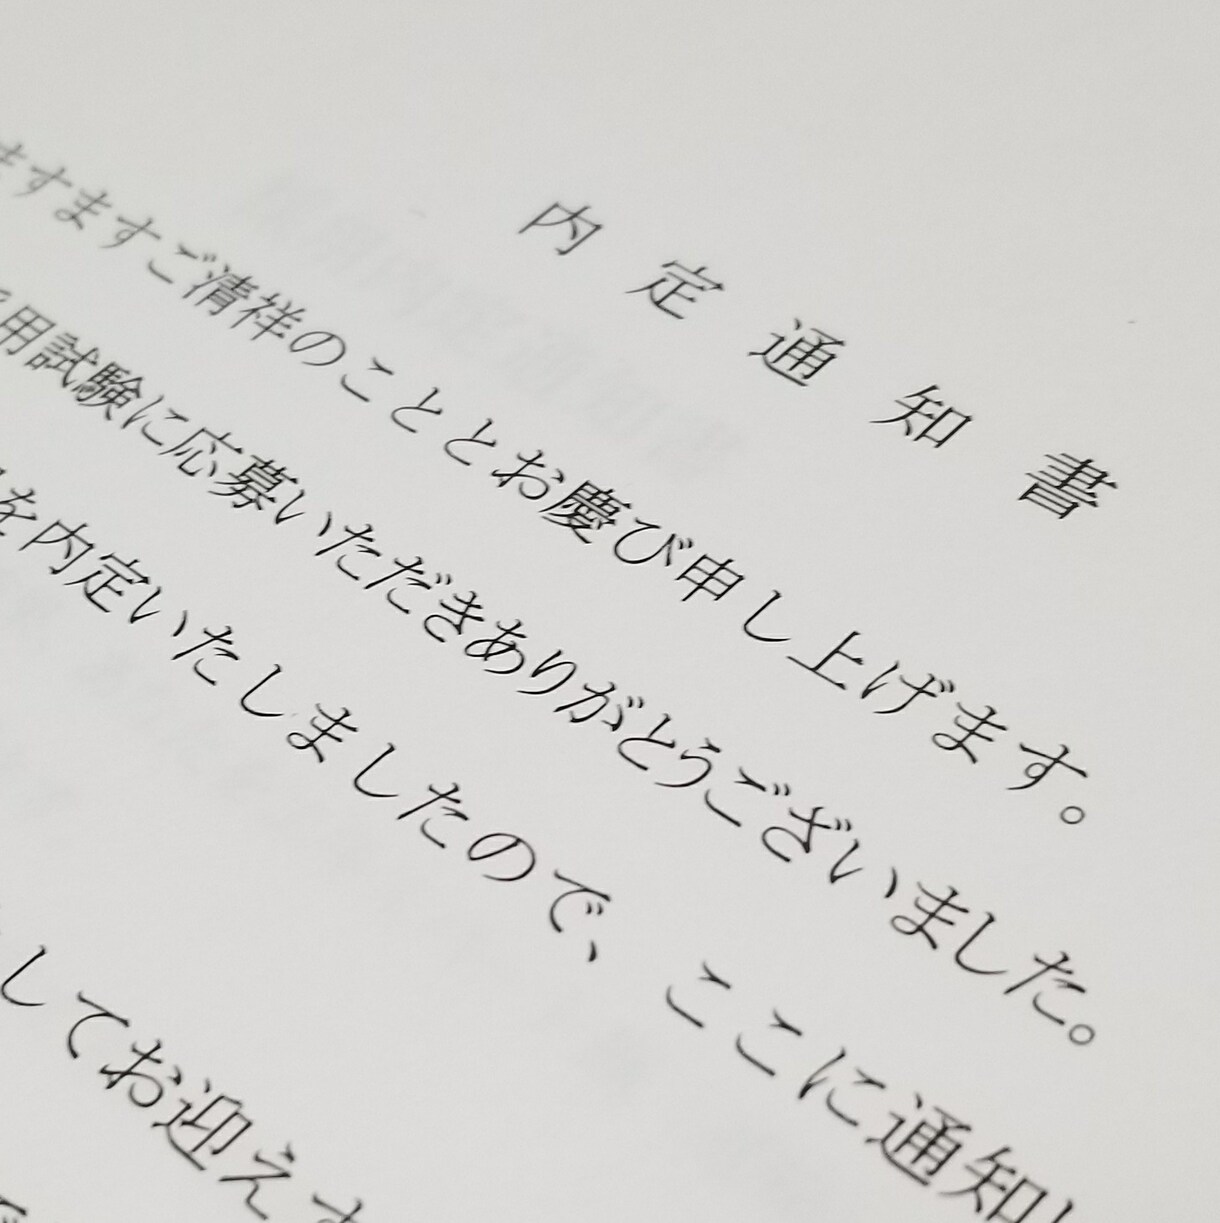 内定通知書
ますますご清祥のこととお慶び申し上げます。
用試験に応募いただきありがとうございました。
を内定いたしましたので、ここに通知
してお迎えす